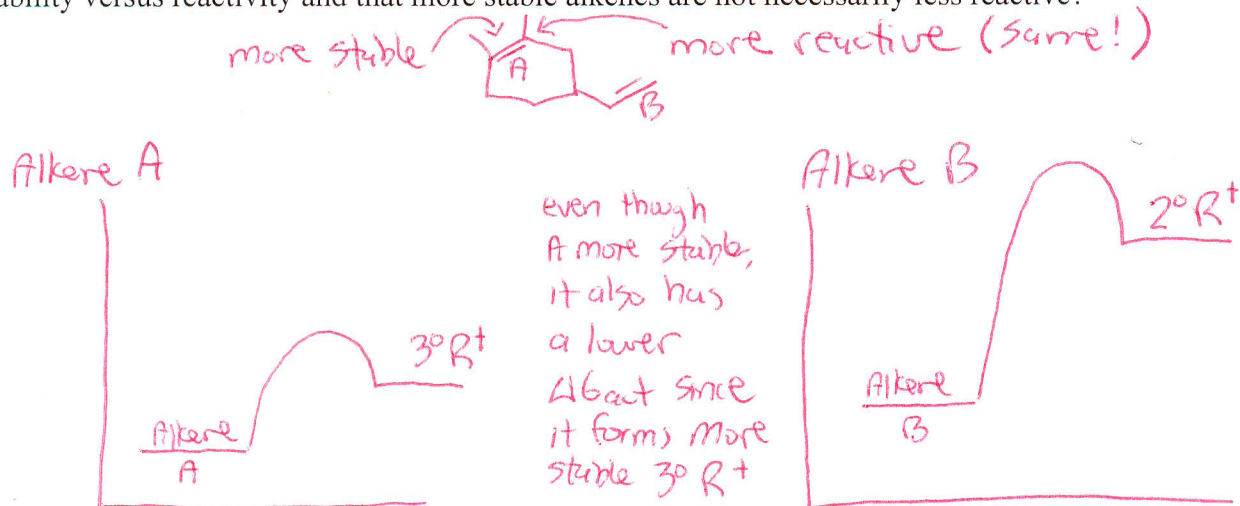 ability versus reactivity and that more stable alkenes are not necessarily less reactive?
more stable
more reactive (same!)
A
B
Alkene A
3° R+
Alkene
A
even though
A more stable,
it also has
a lower
ΔGact since
it forms more
stable 3° R+
Alkene B
2° R+
Alkene
B